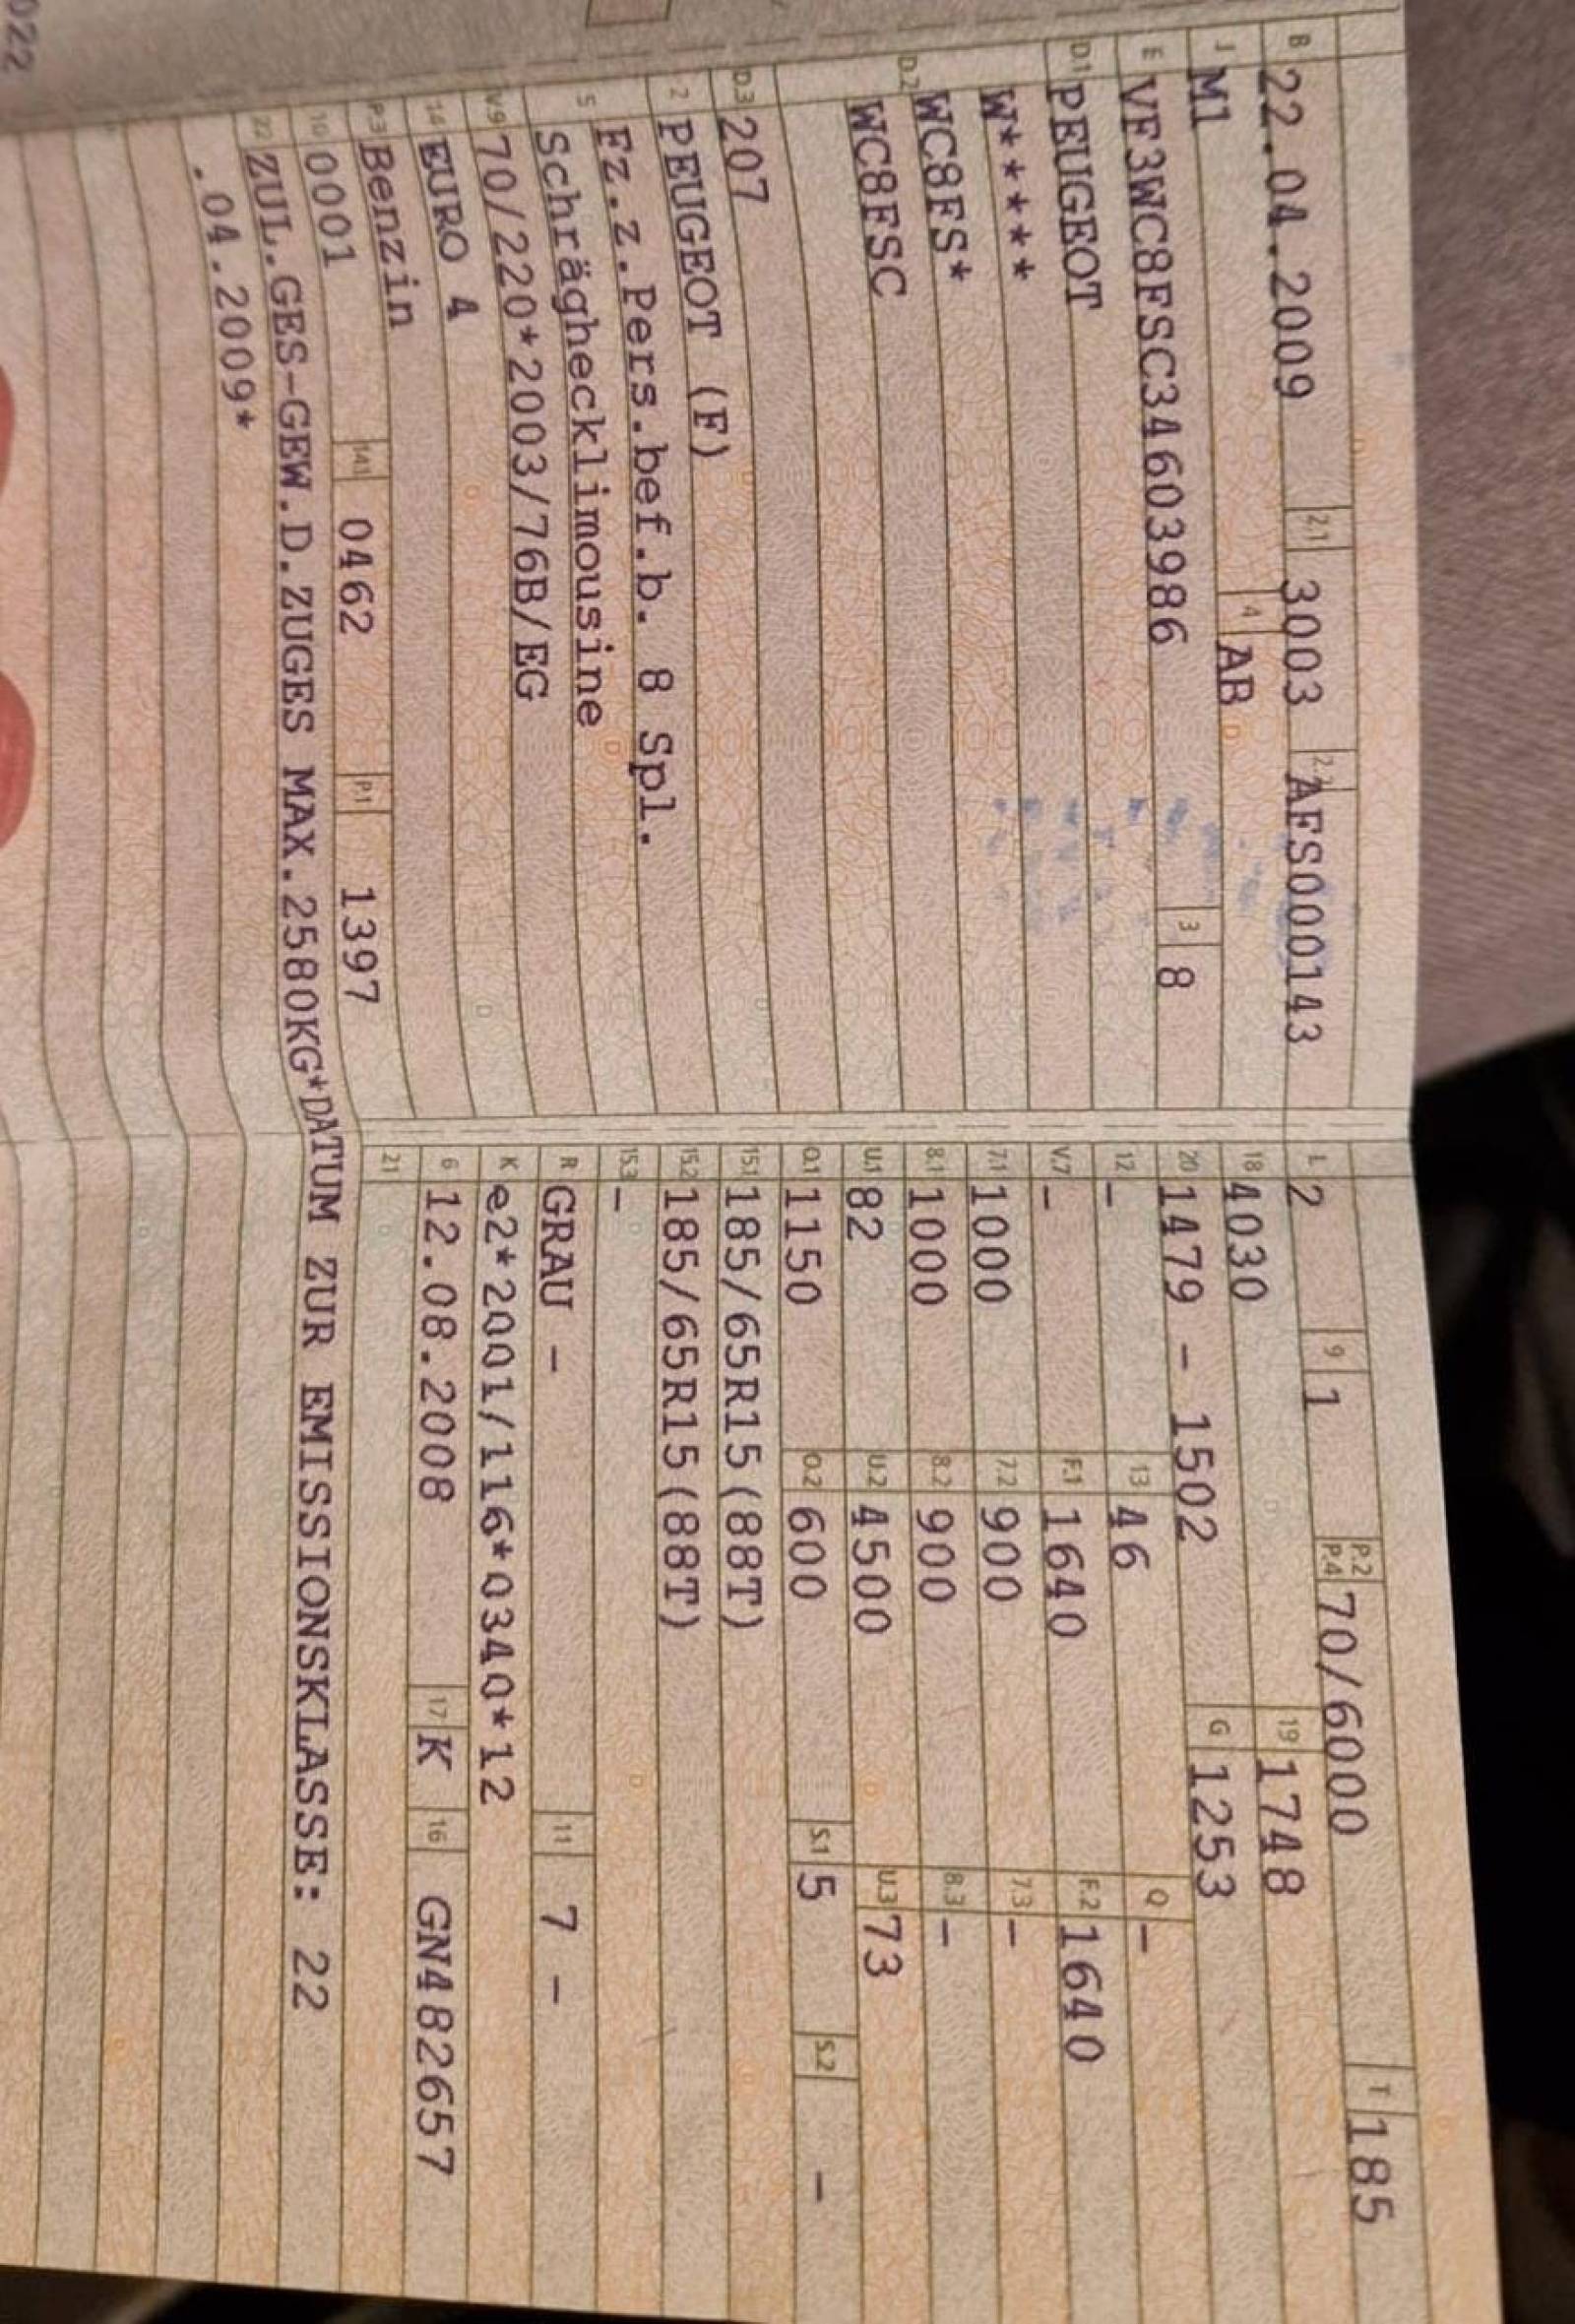 B 22.04.2009 2.1 3003 2.2 AFS000143
J M1 4 AB
E VF3WC8FSC34603986 3 8
D.1 PEUGEOT
W*****
D.2 WC8FS*
WC8FSC
D.3 207
2 PEUGEOT (F)
Fz.z.Pers.bef.b. 8 Spl.
5 Schräghecklimousine
V.9 70/220*2003/76B/EG
14 EURO 4
P.3 Benzin
10 0001 14.1 0462 P.1 1397
22 ZUL.GES-GEW.D.ZUGES MAX.2580KG*DATUM ZUR EMISSIONSKLASSE: 22
.04.2009*
L 2 9 1 P.2 P.4 70/6000 T 185
18 4030 19 1748
20 1479 - 1502 G 1253
12 - 13 46 Q -
V.7 - F.1 1640 F.2 1640
7.1 1000 7.2 900 7.3 -
8.1 1000 8.2 900 8.3 -
U.1 82 U.2 4500 U.3 73
O.1 1150 O.2 600 S.1 5 S.2 -
15.1 185/65R15(88T)
15.2 185/65R15(88T)
15.3 -
R GRAU - 11 7 -
K e2*2001/116*0340*12
6 12.08.2008 17 K 16 GN482657
21
022